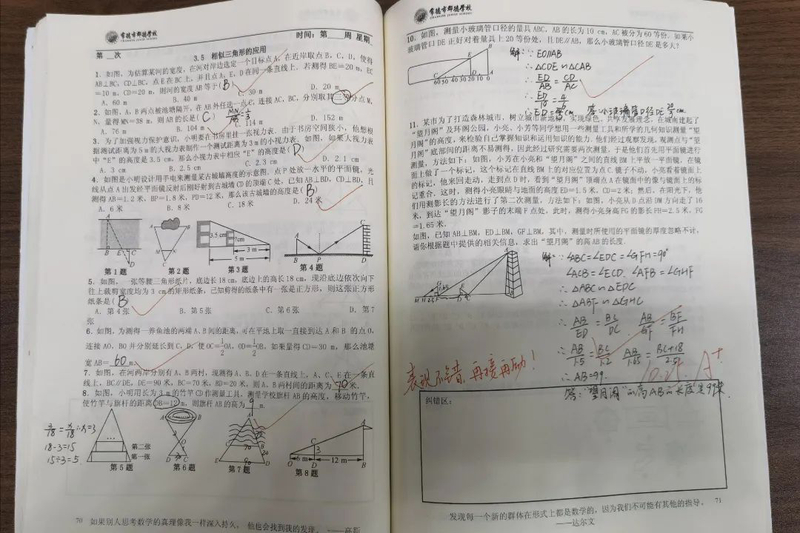 常德市郡德学校
时间：第 周 星期
第 次
3.5 相似三角形的应用
1. 如图，为估算某河的宽度，在河对岸边选定一个目标点A，在近岸取点B，C，D，使得
AB⊥BC，CD⊥BC，点E在BC上，并且点A，E，D在同一条直线上．若测得BE=20 m，EC
=10 m，CD=20 m，则河的宽度AB等于(B)
A. 60 m B. 40 m C. 30 m D. 20 m
2. 如图，A，B两点被池塘隔开，在AB外任选一点C，连接AC，BC，分别取其三等分点M，
N，量得MN=38 m，则AB的长是( )
A. 76 m B. 104 m C. 114 m D. 152 m
3. 为了加强视力保护意识，小明要在书房里挂一张视力表．由于书房空间狭小，他想根
据测试距离为5 m的大视力表制作一个测试距离为3 m的小视力表．如图，如果大视力表
中"E"的高度是3.5 cm，那么小视力表中相应"E"的高度是(D)
A. 3 cm B. 2.5 cm C. 2.3 cm D. 2.1 cm
4. 如图是小明设计用手电来测量某古城墙高度的示意图，点P处放一水平的平面镜，光
线从点A出发经平面镜反射后刚好射到古城墙CD的顶端C处，已知AB⊥BD，CD⊥BD，且
测得AB=1.2米，BP=1.8米，PD=12米，那么该古城墙的高度是(B)
A. 6米 B. 8米 C. 18米 D. 24米
第1题 第2题 第3题 第4题
5. 如图，一张等腰三角形纸片，底边长18 cm，底边上的高长18 cm，现沿底边依次向下
往上裁剪宽度均为3 cm的矩形纸条，已知剪得的纸条中有一张是正方形，则这张正方形
纸条是(B)
A. 第4张 B. 第5张 C. 第6张 D. 第7
张
6. 如图，为测得一养鱼池的两端A，B间的距离，可在平地上取一直接到达A和B的点O，
连接AO，BO并分别延长到C，D，使OC=1/2OA，OD=1/2OB，如果量得CD=30 m，那么池塘
宽AB=60m．
7. 如图，在河两岸分别有A，B两村，现测得A，B，D在一条直线上，A，C，E在一条直
线上，BC//DE，DE=90米，BC=70米，BD=20米，则A，B两村间的距离为70米．
8. 如图，小明用长为3 m的竹竿CD作测量工具，测量学校旗杆AB的高度，移动竹竿，
使竹竿与旗杆的距离DB=12 m，则旗杆AB的高为 m．
18-3=15
15÷3=5
第二张
第一张
6 m 12 m
第5题 第6题 第7题 第8题
70 如果别人思考数学的真理像我一样深入持久，他也会找到我的发现． ——高斯
常德市郡德学校
10. 如图，测量小玻璃管口径的量具ABC，AB的长为10 cm，AC被分为60等份．如果小
玻璃管口DE正好对着量具上20等份处，且DE//AB，那么小玻璃管口径DE是多大？
60 50 40 30 20 10 0
解：∵ED//AB
∴△CDE∽△CAB
∴ED/AB=CD/AC
11. 某市为了打造森林城市，树立城市新地标，实现绿色、共享发展理念，在城南建起了
"望月阁"及环阁公园．小亮、小芳等同学想用一些测量工具和所学的几何知识测量"望
月阁"的高度，来检验自己掌握知识和运用知识的能力．他们经过观察发现，观测点与"望
月阁"底部间的距离不易测得，因此经过研究需要两次测量，于是他们首先用平面镜进行
测量，方法如下：如图，小芳在小亮和"望月阁"之间的直线BM上平放一平面镜，在镜
面上做了一个标记，这个标记在直线BM上的对应位置为点C，镜子不动，小亮看着镜面上
的标记，他来回走动，走到点D时，看到"望月阁"顶端点A在镜面中的像与镜面上的标
记重合，这时，测得小亮眼睛与地面的高度ED=1.5米，CD=2米；然后，在阳光下，他
们用测影长的方法进行了第二次测量，方法如下：如图，小亮从D点沿DM方向走了16
米，到达"望月阁"影子的末端F点处，此时，测得小亮身高FG的影长FH=2.5米，FG
=1.65米．
如图，已知AB⊥BM，ED⊥BM，GF⊥BM，其中，测量时所使用的平面镜的厚度忽略不计，
请你根据题中提供的相关信息，求出"望月阁"的高AB的长度．
解：∠ABC=∠EDC=∠GFH=90°
∠ACB=∠ECD，∠AFB=∠GHF
∴△ABC∽△EDC
△ABF∽△GFH
∴AB/ED=BC/DC AB/GF=BF/FH
∴AB/1.5=BC/2 AB/1.65=BC+18/2.5
∴AB=99．
答："望月阁"的高AB的长度是99米．
表现不错，再接再励！
A+
纠错区：
发现每一个新的群体在形式上都是数学的，因为我们不可能有其他的指导．
——达尔文
71